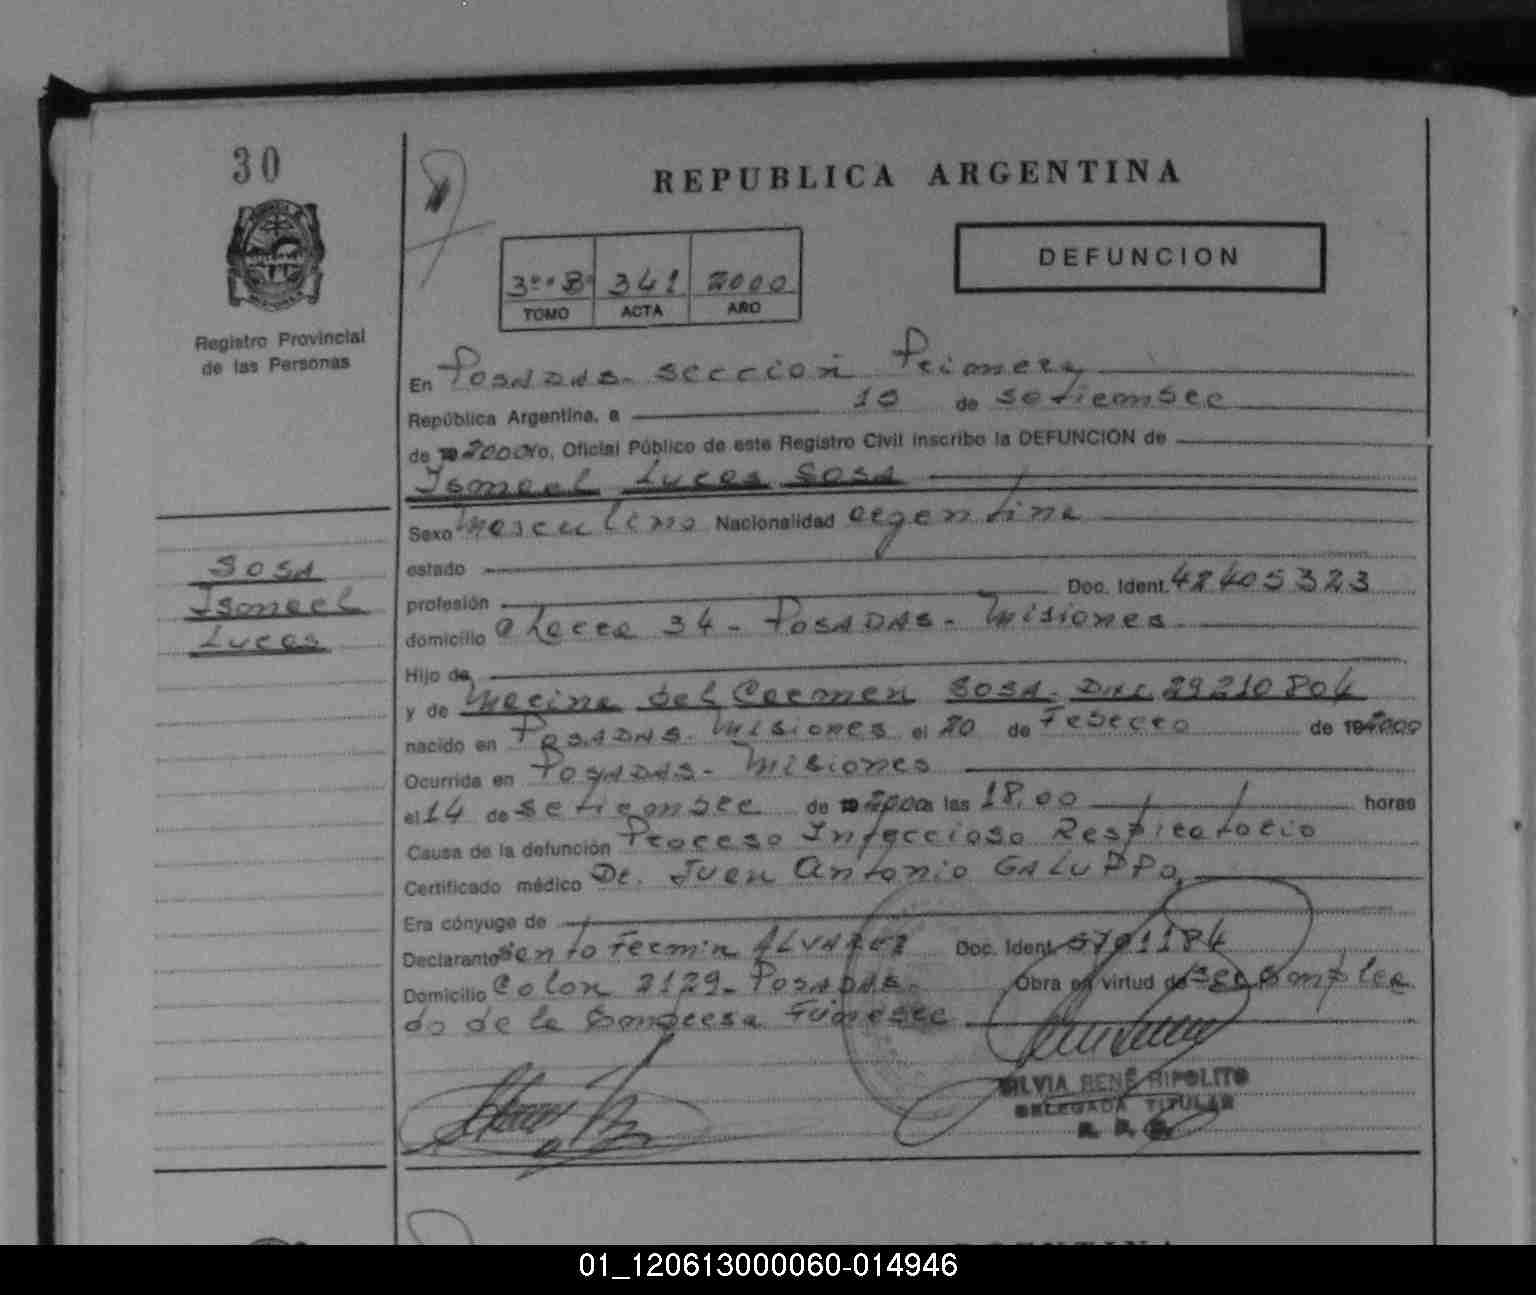 30
REPUBLICA ARGENTINA
DEFUNCION
3º-Bº 341 2000
TOMO ACTA AÑO
Registro Provincial
de las Personas
En Posadas - seccion Primera
República Argentina, a 15 de setiembre
de 2000 Yo, Oficial Público de este Registro Civil inscribo la DEFUNCION de
Ismael Lucas SOSA
Sexo Masculino Nacionalidad argentina
estado
SOSA
Ismael
Lucas
profesión Doc. Ident. 42405323
domicilio Chacra 34 - Posadas - Misiones
Hijo de
y de Marina del Carmen SOSA - DNI 29210804
nacido en Posadas - Misiones el 20 de Febrero de 2000
Ocurrida en Posadas - Misiones
el 14 de setiembre de 2000 a las 18.00 horas
Causa de la defunción Proceso Infeccioso Respiratorio
Certificado médico Dr. Juan Antonio GALUPPO
Era cónyuge de
Declarante Fermin ALVAREZ Doc. Ident. 5701184
Domicilio Colon 2129 - Posadas - Obra en virtud de ser emplea
do de la Empresa Funebre
SILVIA RENÉ HIPOLITO
DELEGADA TITULAR
R. P. P.
01_120613000060-014946